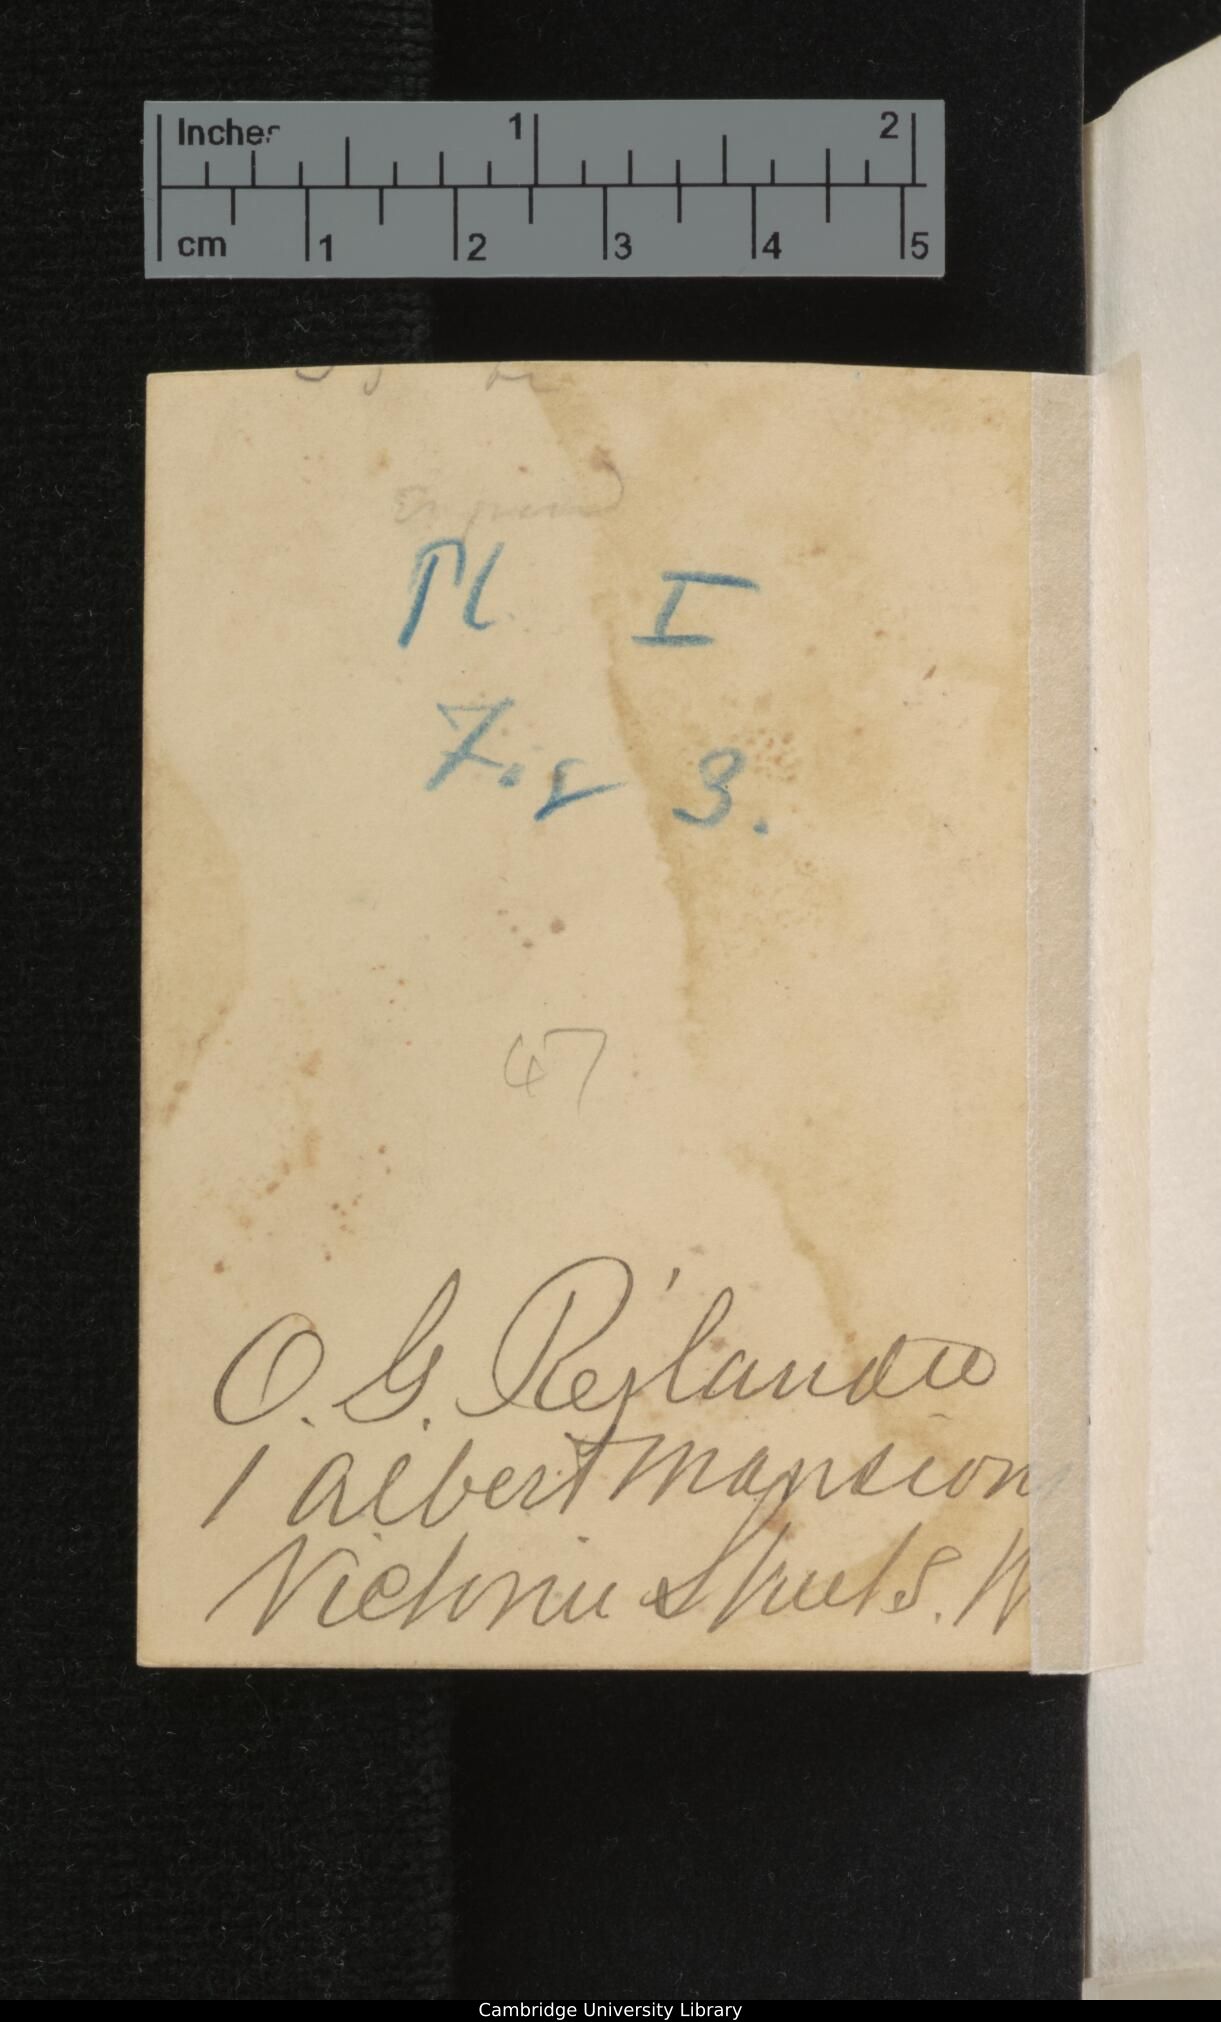 Inches 1 2
cm 1 2 3 4 5
Pl I
Fig 3.
47
O. G. Rejlander
1 Albert Mansion
Victoria Street S. W
Cambridge University Library